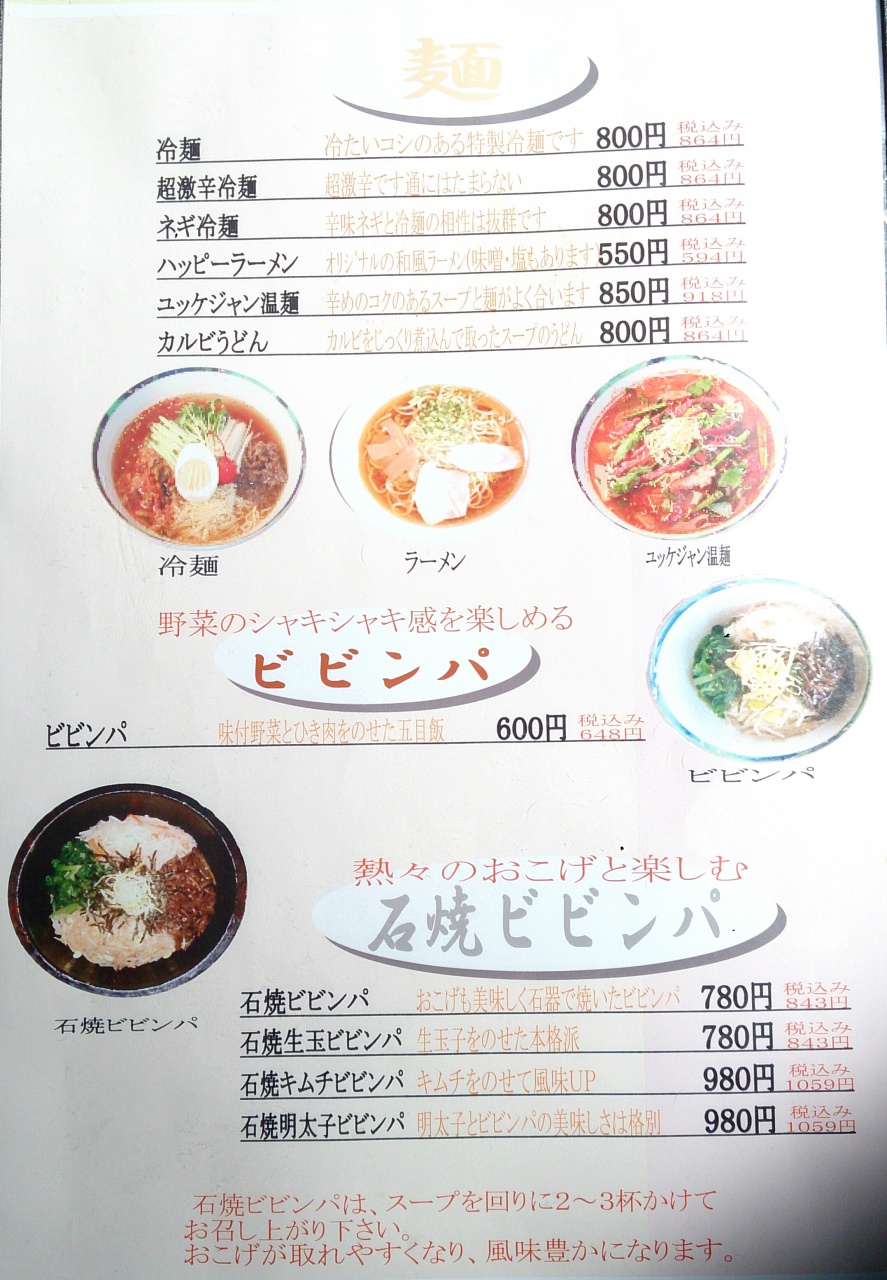 麺
冷麺 冷たいコシのある特製冷麺です 800円 税込み864円
超激辛冷麺 超激辛です通にはたまらない 800円 税込み864円
ネギ冷麺 辛味ネギと冷麺の相性は抜群です 800円 税込み864円
ハッピーラーメン オリジナルの和風ラーメン(味噌・塩もあります) 550円 税込み594円
ユッケジャン温麺 辛めのコクのあるスープと麺がよく合います 850円 税込み918円
カルビうどん カルビをじっくり煮込んで取ったスープのうどん 800円 税込み864円
冷麺 ラーメン ユッケジャン温麺
野菜のシャキシャキ感を楽しめる
ビビンパ
ビビンパ 味付野菜とひき肉をのせた五目飯 600円 税込み648円
ビビンパ
熱々のおこげと楽しむ
石焼ビビンパ
石焼ビビンパ おこげも美味しく石器で焼いたビビンパ 780円 税込み843円
石焼ビビンパ
石焼生玉ビビンパ 生玉子をのせた本格派 780円 税込み843円
石焼キムチビビンパ キムチをのせて風味UP 980円 税込み1059円
石焼明太子ビビンパ 明太子とビビンパの美味しさは格別 980円 税込み1059円
石焼ビビンパは、スープを回りに2～3杯かけて
お召し上がり下さい。
おこげが取れやすくなり、風味豊かになります。